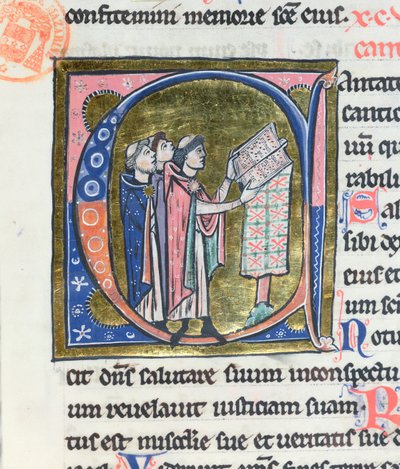 confitemini memorie sc̄e eius. x.c.v
can
Antate
cantic
uū qu
rabili
Sal
sibi de
eius et
um sc
Notu
cit dn̄s salutare suum inconspectu
um reuelauit iusticiam suam. R
tus est misc̄die sue et ueritatis sue